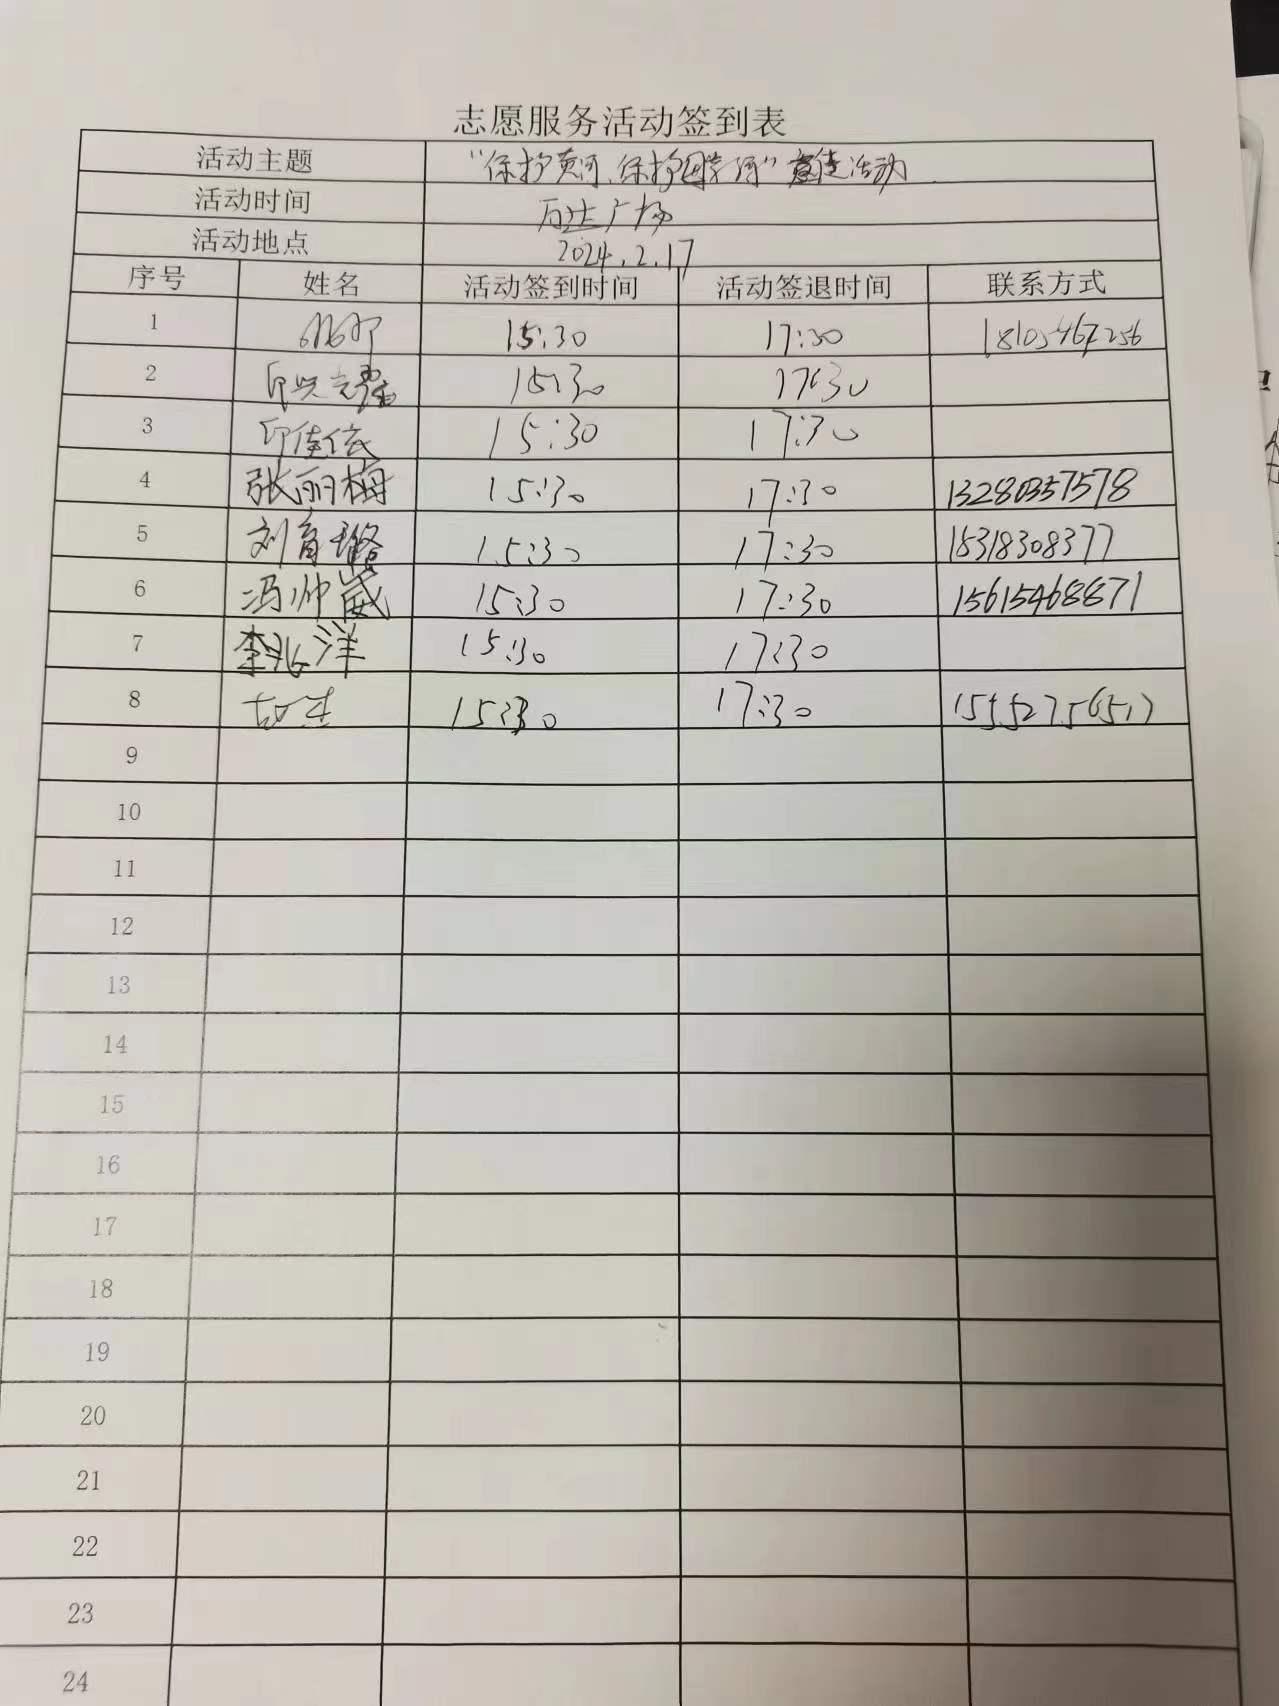 志愿服务活动签到表
活动主题 "保护黄河、保护母亲河"宣传活动
活动时间 万达广场
活动地点 2024.2.17
序号 姓名 活动签到时间 活动签退时间 联系方式
1 15:30 17:30
2 15:30 17:30
3 印佳依 15:30 17:30
4 张丽梅 15:30 17:30 13280357578
5 刘育璐 15:30 17:30 18318308377
6 冯帅崴 15:30 17:30 15615468871
7 李兆洋 15:30 17:30
8 15:30 17:30
9
10
11
12
13
14
15
16
17
18
19
20
21
22
23
24